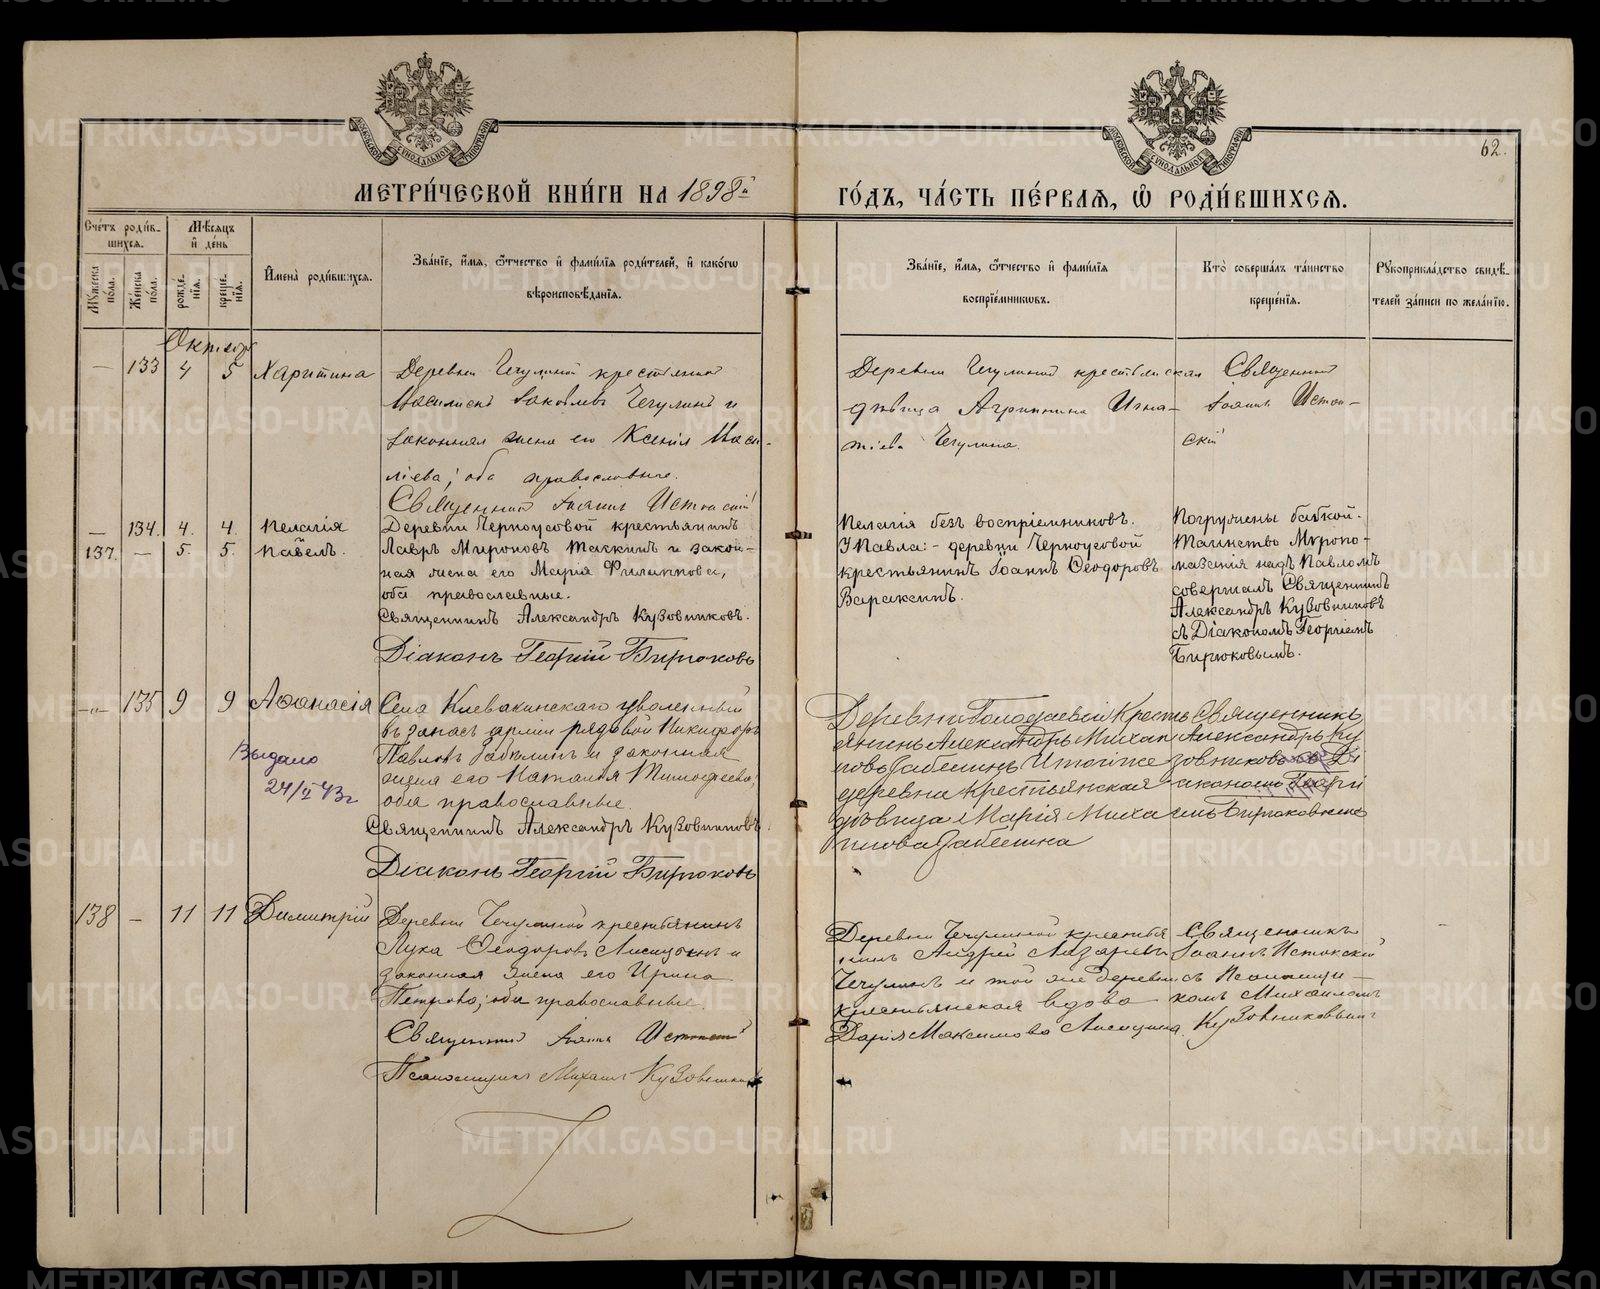 МЕТРИ́ЧЕСКОЙ КНИ́ГИ НА 1898й
ГО́ДЪ, ЧА́СТЬ ПЕ́РВАѦ, Ѡ РОДИ́ВШИХСѦ.
62.
Сче́тъ роди́в-
шихсѧ.
Мѣ́сѧцъ
и де́нь
Мꙋ́жеска
по́ла.
Же́нска
по́ла.
рожде́-
нїѧ.
креще́-
нїѧ.
Имена̀ роди́вшихсѧ.
Зва́нїе, и́мѧ, ѻ́тчество и фами́лїѧ роди́телей, и како́гѡ
вѣроисповѣ́данїѧ.
Зва́нїе, и́мѧ, ѻ́тчество и фами́лїѧ
воспрїе́мникѡвъ.
Кто̀ соверша́лъ та́инство
креще́нїѧ.
Рꙋкоприкла́дство свидѣ́-
телей за́писи по жела́нїю.
Октябрь
— 133 4 5 Харитина
Деревни Чечулиной крестьянинъ
Василискъ Іаковлевъ Чечулинъ и
законная жена его Ксенія Васи-
ліева; оба православные.
Священникъ Іоаннъ Истокскій
Деревни Чечулиной крестьянская
дѣвица Агриппина Игна-
тіева Чечулина.
Священникъ
Іоаннъ Исток-
скій
— 134. 4. 4. Пелагія
137. — 5. 5. Павелъ.
Деревни Черноусовой крестьянинъ
Лавръ Мироновъ Таскинъ и закон-
ная жена его Марія Филиппова,
оба православные.
Священникъ Александръ Кузовниковъ.
Діаконъ Георгій Бирюковъ
Пелагія безъ воспріемниковъ.
У Павла: - деревни Черноусовой
крестьянинъ Іоаннъ Ѳеодоровъ
Варакинъ.
Погружены бабкой.
Таинство Миропо-
мазанія надъ Павломъ
совершалъ Священникъ
Александръ Кузовниковъ
съ Діакономъ Георгіемъ
Бирюковымъ.
—„— 135 9 9 Аѳанасія
Выдано
24/II 43г
Села Клевакинскаго уволенный
въ запасъ арміи рядовой Никифоръ
Павловъ Забелинъ и законная
жена его Наталья Тимоѳеева,
оба православные.
Священникъ Александръ Кузовниковъ.
Діаконъ Георгій Бирюковъ
Деревни Голодаевой Кресть
янинъ Александръ Михаи
ловъ Забелинъ и той же
деревни крестьянская
дѣвица Марія Михаи
лова Забелина
Священникъ
Александръ Ку
зовниковъ съ Ді
акономъ Георгі
емъ Бирюковымъ
138 — 11 11 Димитрій
Деревни Чечулиной крестьянинъ
Лука Ѳеодоровъ Лисицынъ и
законная жена его Ирина
Петрова; оба православные.
Священникъ Іоаннъ Истокскій
Псаломщикъ Михаилъ Кузовниковъ
Деревни Чечулиной крестья
нинъ Андрей Лазаревъ
Чечулинъ и той же деревни
крестьянская вдова
Дарія Максимова Лисицина.
Священникъ
Іоаннъ Истокскій
съ Псаломщи-
комъ Михаиломъ
Кузовниковымъ